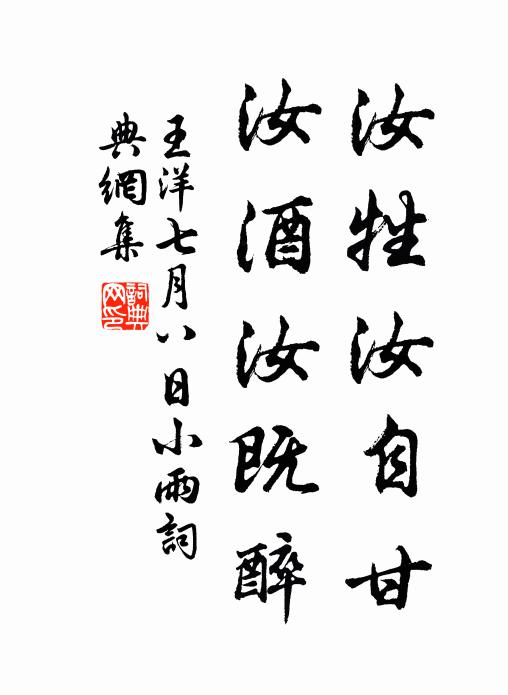 汝牲汝自甘
汝酒汝既醉
王洋七月八日小雨詞
典網集
詞典
网印